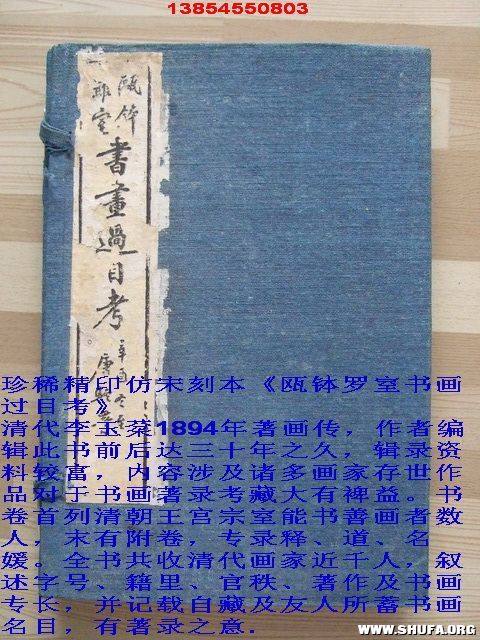 13854550803
甌鉢
羅室
書畫過目考
珍稀精印仿宋刻本《瓯钵罗室书画
过目考》
清代李玉棻1894年著画传，作者编
辑此书前后达三十年之久，辑录资
料较富，内容涉及诸多画家存世作
品对于书画著录考藏大有裨益。书
卷首列清朝王宫宗室能书善画者数
人，末有附卷，专录释、道、名
媛。全书共收清代画家近千人，叙
述字号、籍里、官秩、著作及书画
专长，并记载自藏及友人所蓄书画
名目，有著录之意.
WWW.SHUFA.ORG